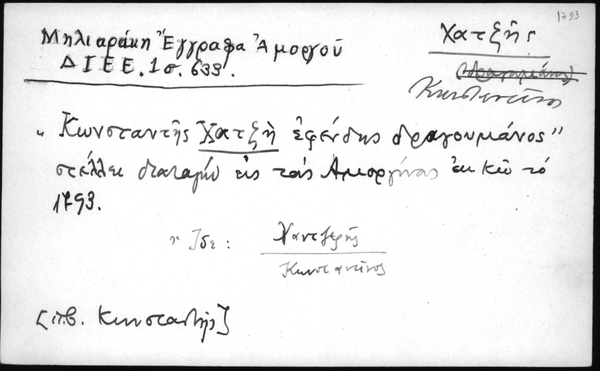 1793
Μηλιαράκη Ἔγγραφα Ἀμοργοῦ
Δ Ι Ε Ε . 1 σ. 633.
Χατζῆς
Κωνσταντῖνος
"Κωνσταντῆς Χατζῆ ἐφένδης δραγουμάνος"
στέλλει διαταγήν εἰς τούς Ἀμοργίνους ἐκ Κῶ τό
1793.
Ἴδε: Χαντζερῆς
Κωνσταντῖνος
Κωνσταντῆς